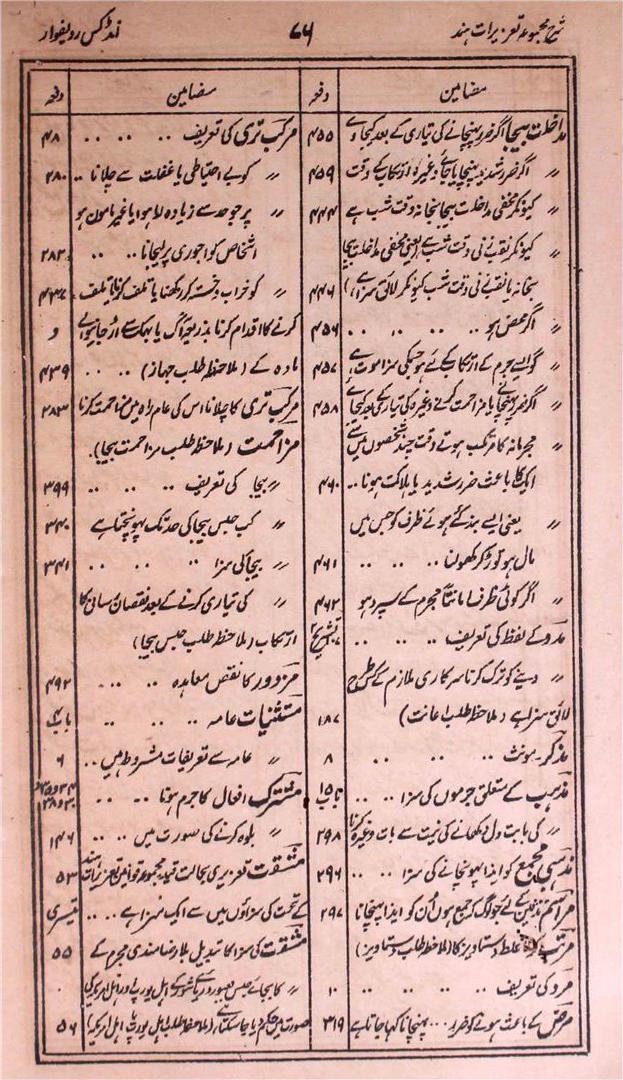 شرح مجموعہ تعزیرات ہند
۷۶
انڈکس ردیفوار
مضامین
دفعہ
مداخلت بیجا اگر ضرر پہنچانے کی تیاری کے بعد کیجاوے ۴۵۵
〃 اگر ضرر شدید پہنچایا جائے وغیرہ ارتکاب کے وقت ۴۵۹
〃 کیونکر مخفی مداخلت بیجا بخانہ وقت شب ہے ۴۴۴
〃 کیونکر نقب زنی وقت شب ہے (یعنی مخفی مداخلت بیجا
بخانہ یا نقب زنی وقت شب کیونکر لائق سزا ہے) ۴۴۶
〃 اگر محض ہو .. .. .. .. ۴۵۶
〃 گو ایسے جرم کے ارتکاب کے لئے ہو جسکی سزا موت ہے ۴۵۷
〃 اگر ضرر پہنچانے یا مزاحمت کرنے وغیرہ کی تیاری کے بعد کیجائے ۴۵۸
〃 مجرمانہ کا مرتکب ہوتے وقت چند شخصوں میں سے
ایک کا باعث ضرر شدید یا ہلاکت ہونا .. ۴۶۰
〃 یعنی ایسے بند کئے ہوئے ظرف کو جس میں
مال ہو توڑ کر کھولنا .. .. .. ۴۶۱
〃 اگر کوئی ظرف امانتاً مجرم کے سپرد ہو ۴۶۲
مدد کے لفظ کی تعریف .. .. .. تشریح
〃 دینے کو ترک کرنا سرکاری ملازم کے کس طرح
لائق سزا ہے (ملاحظہ طلب اعانت) ۱۸۷
مذکر۔ مونث .. .. .. ۸
مذہب کے متعلق جرموں کی سزا .. .. باب ۱۵
〃 کی بابت دل دکھانے کی نیت سے بات وغیرہ کرنا ۲۹۸
مذہبی مجمع کو ایذا پہونچانے کی سزا .. .. ۲۹۶
مراسم تدفین کے لئے جو لوگ کہ جمع ہوں اُن کو ایذا پہنچانا ۲۹۷
مرتب کرنا غلط دستاویز کا (ملاحظہ طلب دستاویز)
مرد کی تعریف .. .. .. .. ۱۰
مرض کے باعث ہونے کو ضرر ... پہنچانا کہا جاتا ہے ۳۱۹
مضامین
دفعہ
مرکب تری کی تعریف .. .. .. ۴۸
〃 کو بے احتیاطی یا غفلت سے چلانا .. ۲۸۰
〃 پر جو حد سے زیادہ لدا ہوا یا غیر مامون ہو
اشخاص کو اجوری پر لیجانا .. .. ۲۸۲
〃 کو خراب دخستہ کر رکھنا یا تلف کرنا یا تلف ۴۳۷
کرنے کا اقدام کرنا بذریعہ آگ یا بھک سے اُڑ جانیوالے و
مادہ کے (ملاحظہ طلب جہاز) .. .. ۴۳۹
مرکب تری کا چلانا اس کی عام راہ میں مزاحمت کرنا ۲۸۳
مزاحمت (ملاحظہ طلب مزاحمت بیجا)۔
〃 بیجا کی تعریف .. .. .. ۳۳۹
〃 کب حبس بیجا کی حد تک پہونچتا ہے ۳۴۰
〃 بیجا کی سزا .. .. .. ۳۴۱
〃 کی تیاری کرنے کے بعد نقصان رسانی کا
ارتکاب (ملاحظہ طلب حبس بیجا)
مزدور کا نقص معاہدہ .. .. .. ۴۹۲
مستثنیات عامہ .. .. .. باب ۴
〃 عامہ سے تعریفات مشروط ہیں .. ۶
مشترک افعال کا جرم ہونا .. ..
〃 بلوہ کرنے کی صورت میں .. .. ۱۴۶
مشقت تعزیری بحالت قید مجموعہ قوانین تعزیرات ہند ۵۳
کے تحت کی سزاؤں میں سے ایک سزا ہے .. .. تیسری
مشقت کی سزا کا تبدیل بلا رضامندی مجرم کے ۵۵
〃 کا بجائے حبس بعبور دریائے شور کے اہل یورپ اور اہل امریکہ کی
صورت میں حکم دیا جا سکتا ہے (ملاحظہ طلب اہل یورپ یا اہل امریکہ) ۵۶